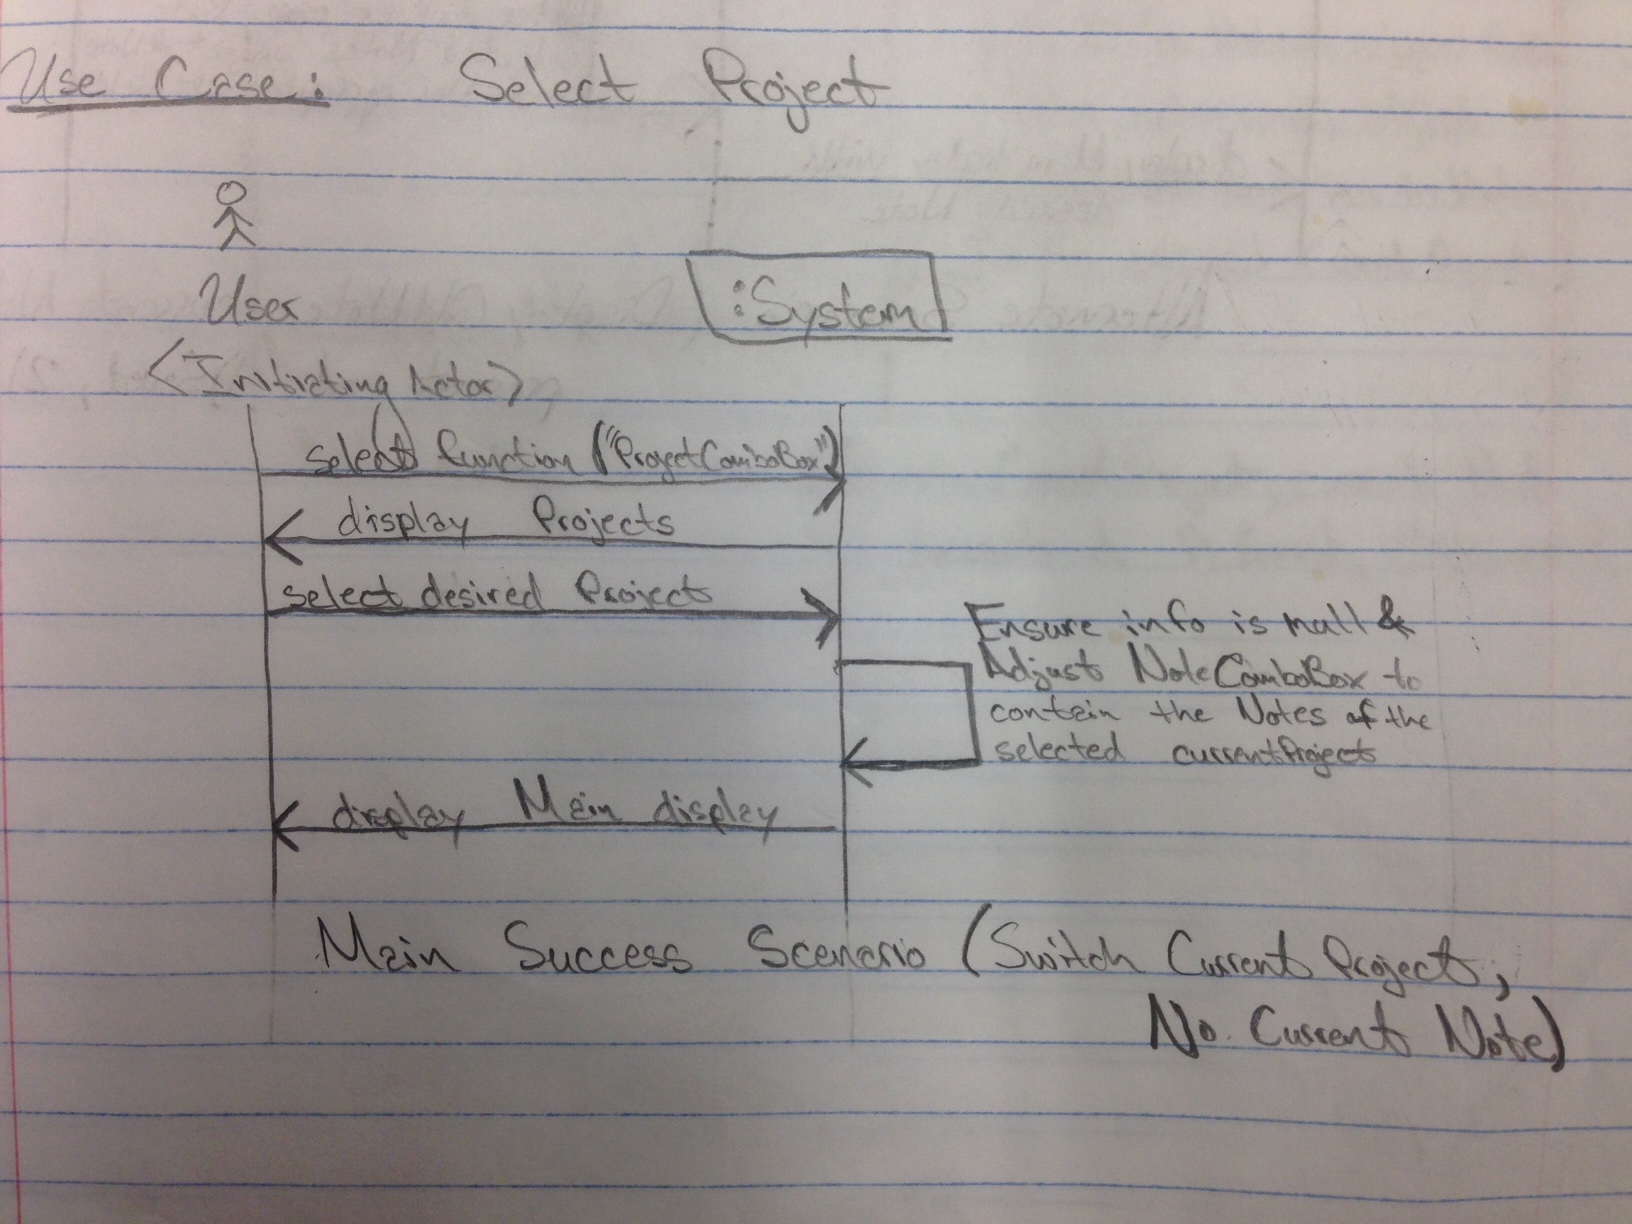 Use Case: Select Project
User
:System
<Initiating Actor>
select function ("ProjectComboBox")
display Projects
select desired Project
Ensure info is null &
Adjust NoteComboBox to
contain the Notes of the
selected currentProject
display Main display
Main Success Scenario (Switch Current Project,
No Current Note)